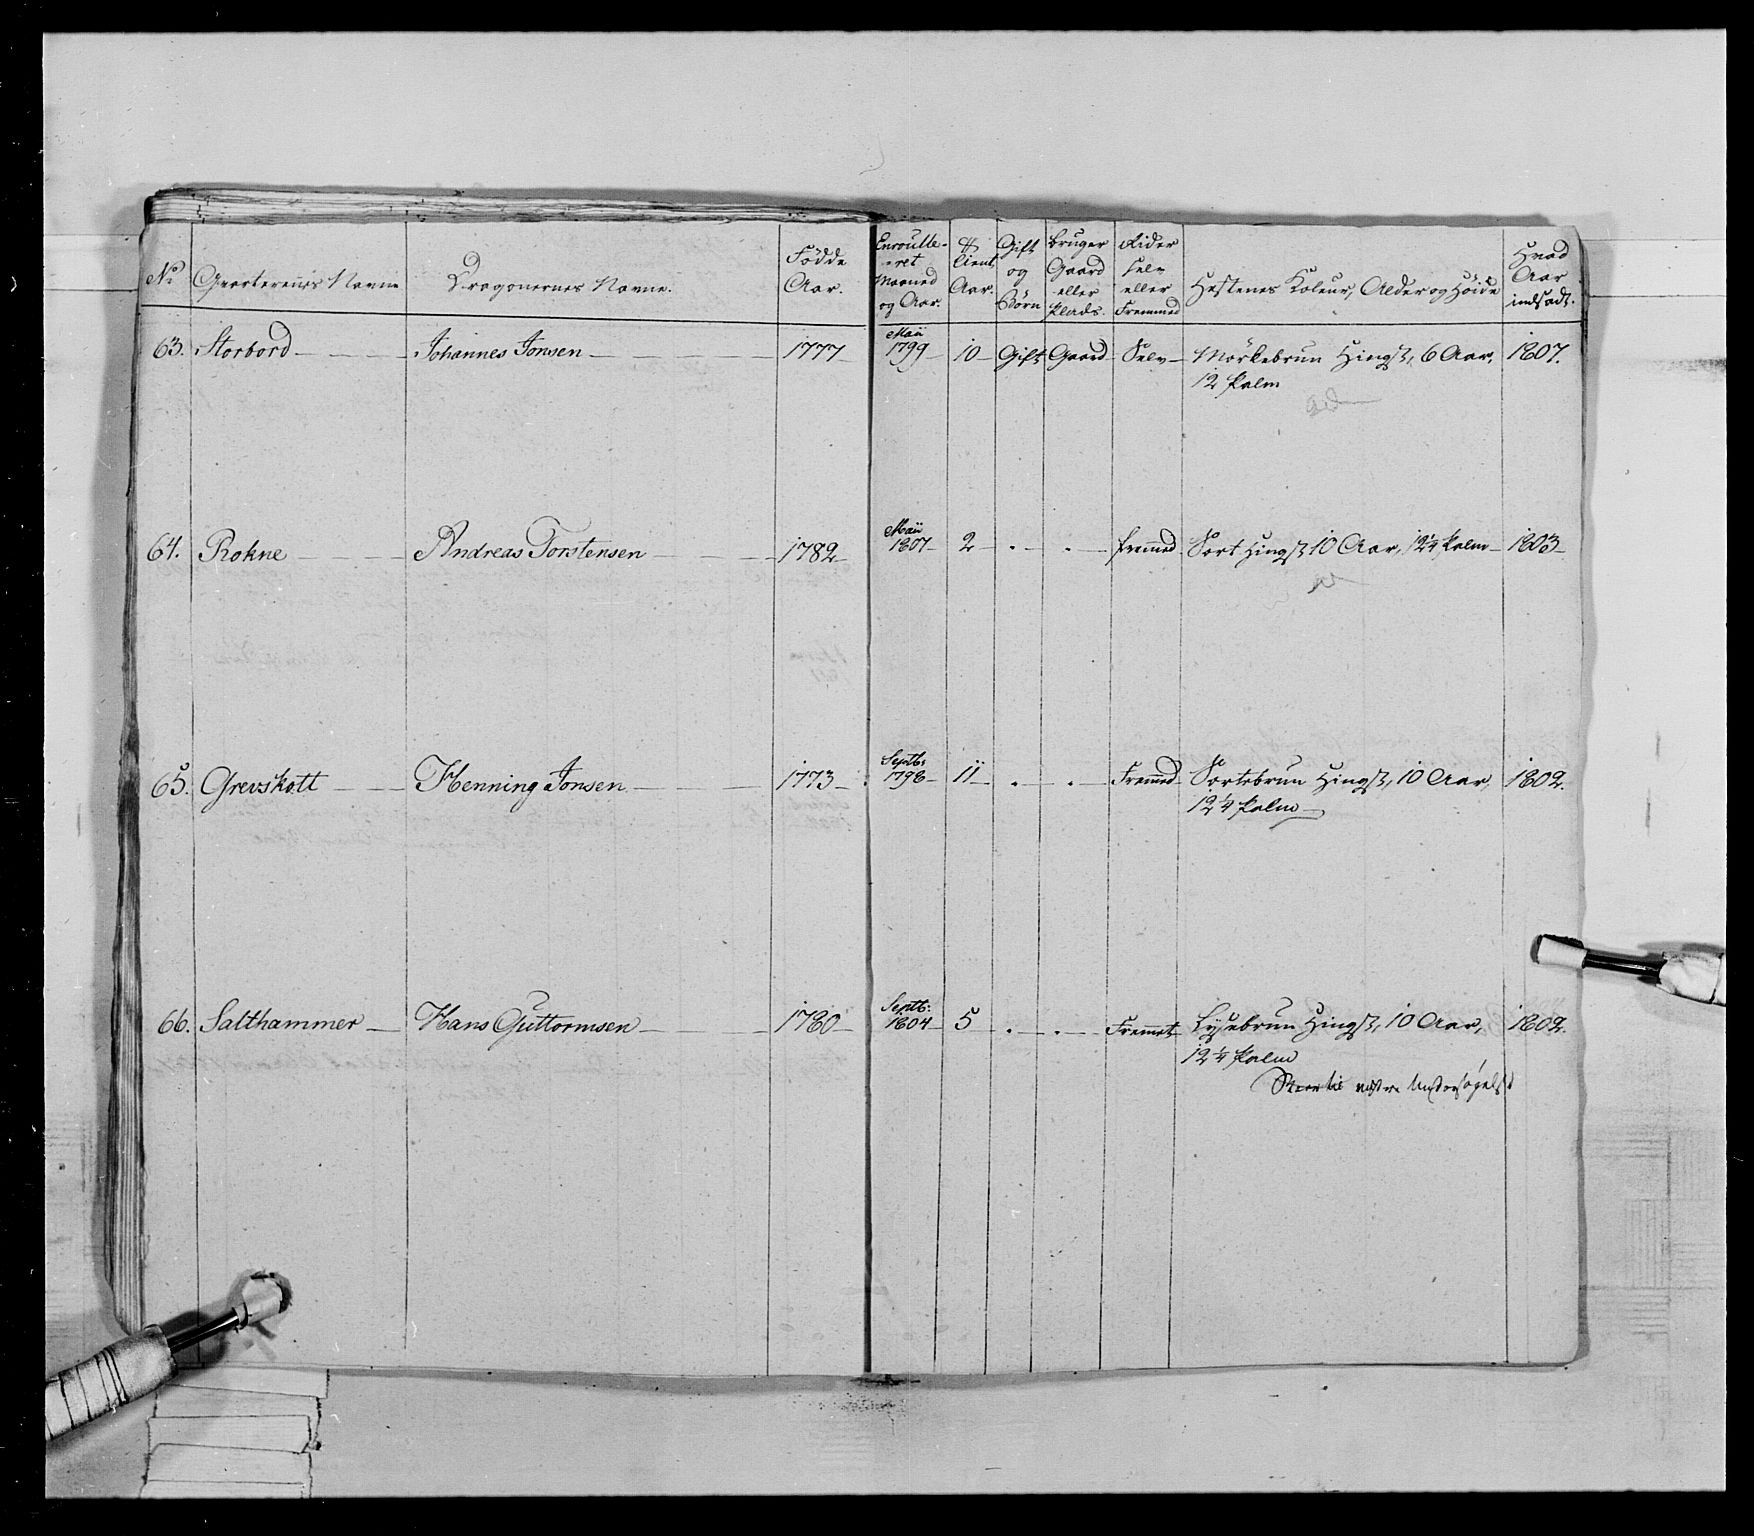 No Qvarterenes Navne Dragonernes Navne. Fødde Aar. Enroullè-eret Maaned og Aar. Tient Aar. Gift og Børn Bruger Gaard eller Plads. Rider selv eller Fremmed Hestenes Koleur, Alder og Høide Hvad Aar indsadt.
63. Storbord Johannes Jonsen 1777 Maii 1799 10 Gift Gaard Selv Mørkebrun Hingst, 6 Aar, 1807.
12 Palm
64. Rokne Andreas Torstensen 1782 Maii 1807 2 . . fremed Sort Hingst 10 Aar, 12¼ Palm 1803
65. Grevskott Henning Jonsen 1773 Septb: 1798 11 . . Fremed Sortebrun Hingst, 10 Aar, 1802.
12¼ Palm
66. Salthammer Hans Guttormsen 1780 Septb: 1804 5 . . Fremet Lysebrun Hingst, 10 Aar, 1802.
12¼ Palm
til Undersøgelse